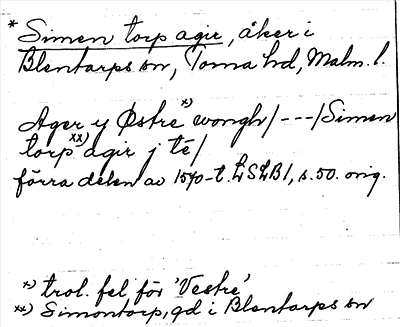 * Simon torp agir, åker i
Blentarps sn, Torna hd, Malm. l.
Ager y Østre *) wongh/---/Simen
torp xx) agir j té/
förra delen av 1570-t. LSLB1, s. 50. orig.
x) trol. fel för 'Vestre'
xx) Simontorp, gd i Blentarps sn